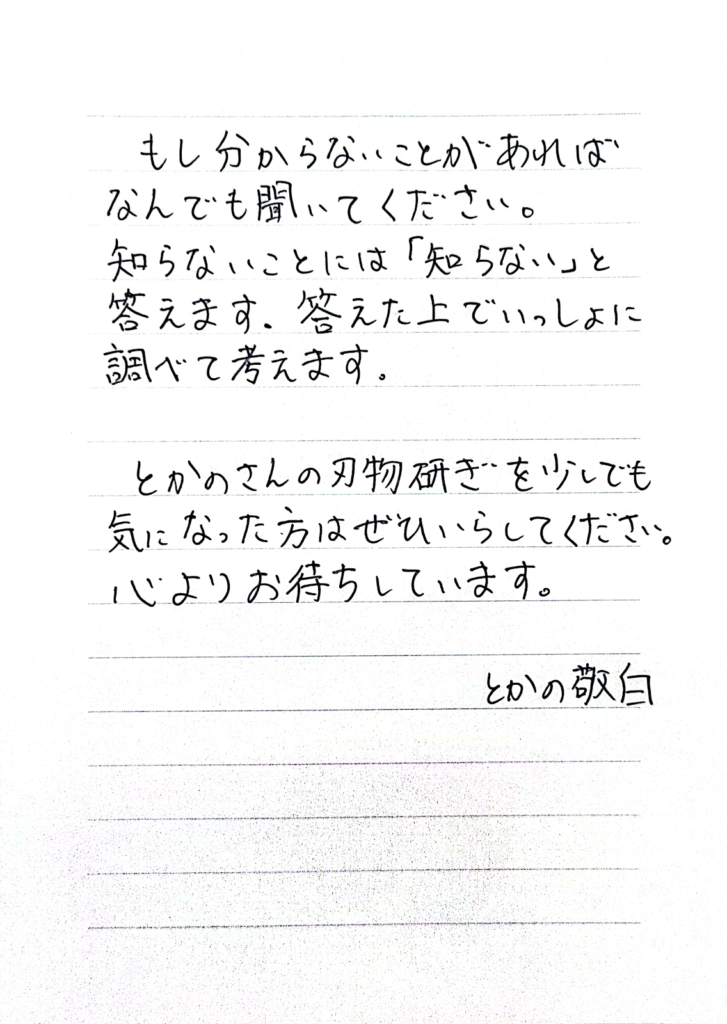 もし分からないことがあれば
なんでも聞いてください。
知らないことには「知らない」と
答えます。答えた上でいっしょに
調べて考えます。
とかのさんの刃物研ぎを少しでも
気になった方はぜひいらしてください。
心よりお待ちしています。
とかの敬白